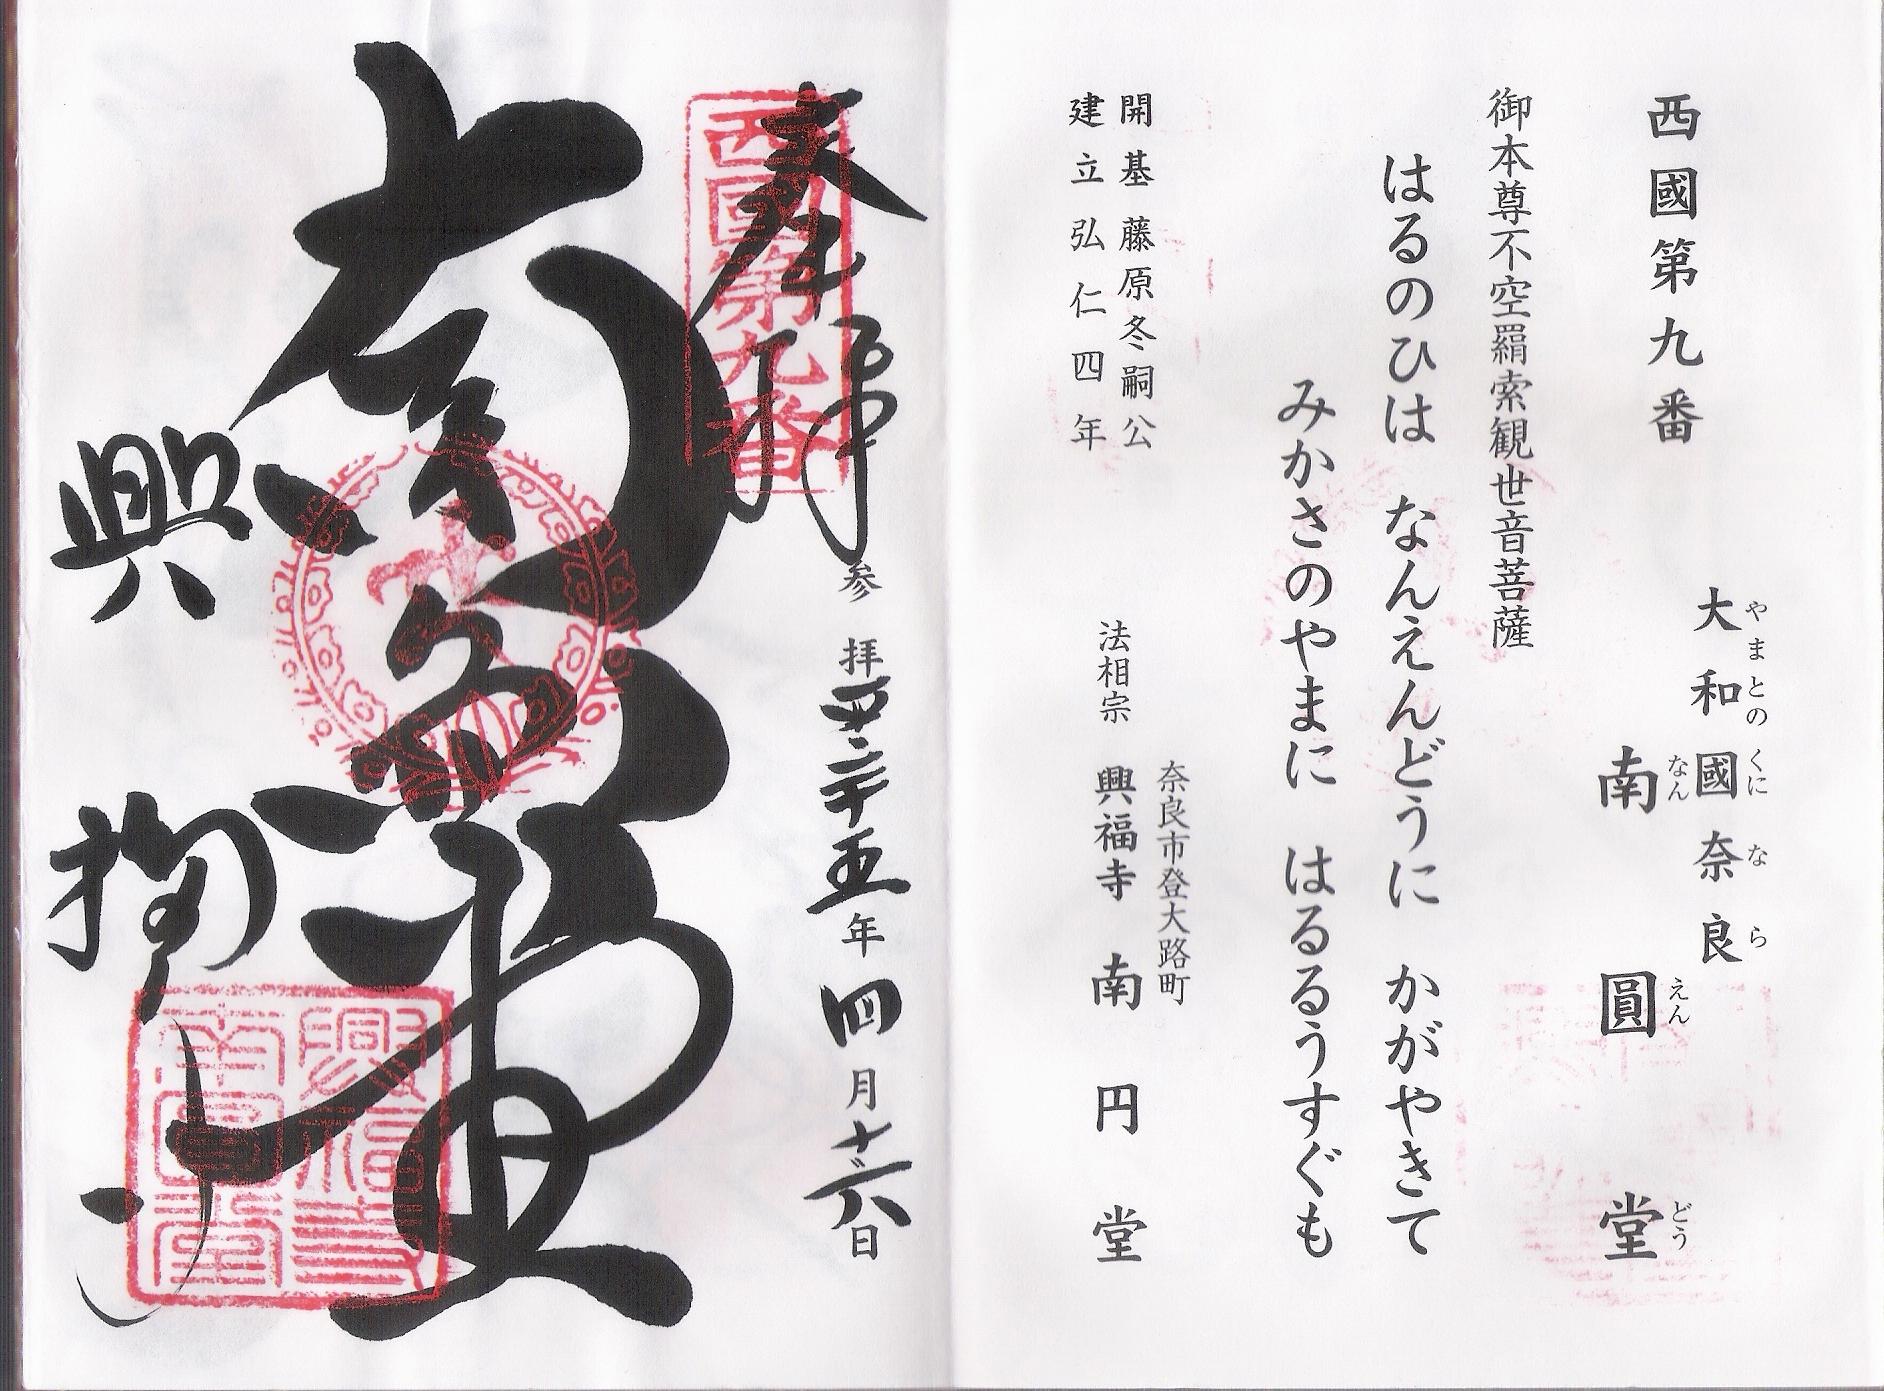 西國第九番
大和國奈良
やまとのくになら
南圓堂
なんえんどう
御本尊不空羂索観世音菩薩
はるのひは　なんえんどうに　かがやきて
みかさのやまに　はるるうすぐも
開基藤原冬嗣公
建立弘仁四年
奈良市登大路町
法相宗　興福寺　南円堂
奉拝
西國第九番
参拝平成二十五年四月十六日
南圓堂
興福寺
興福寺
南円堂